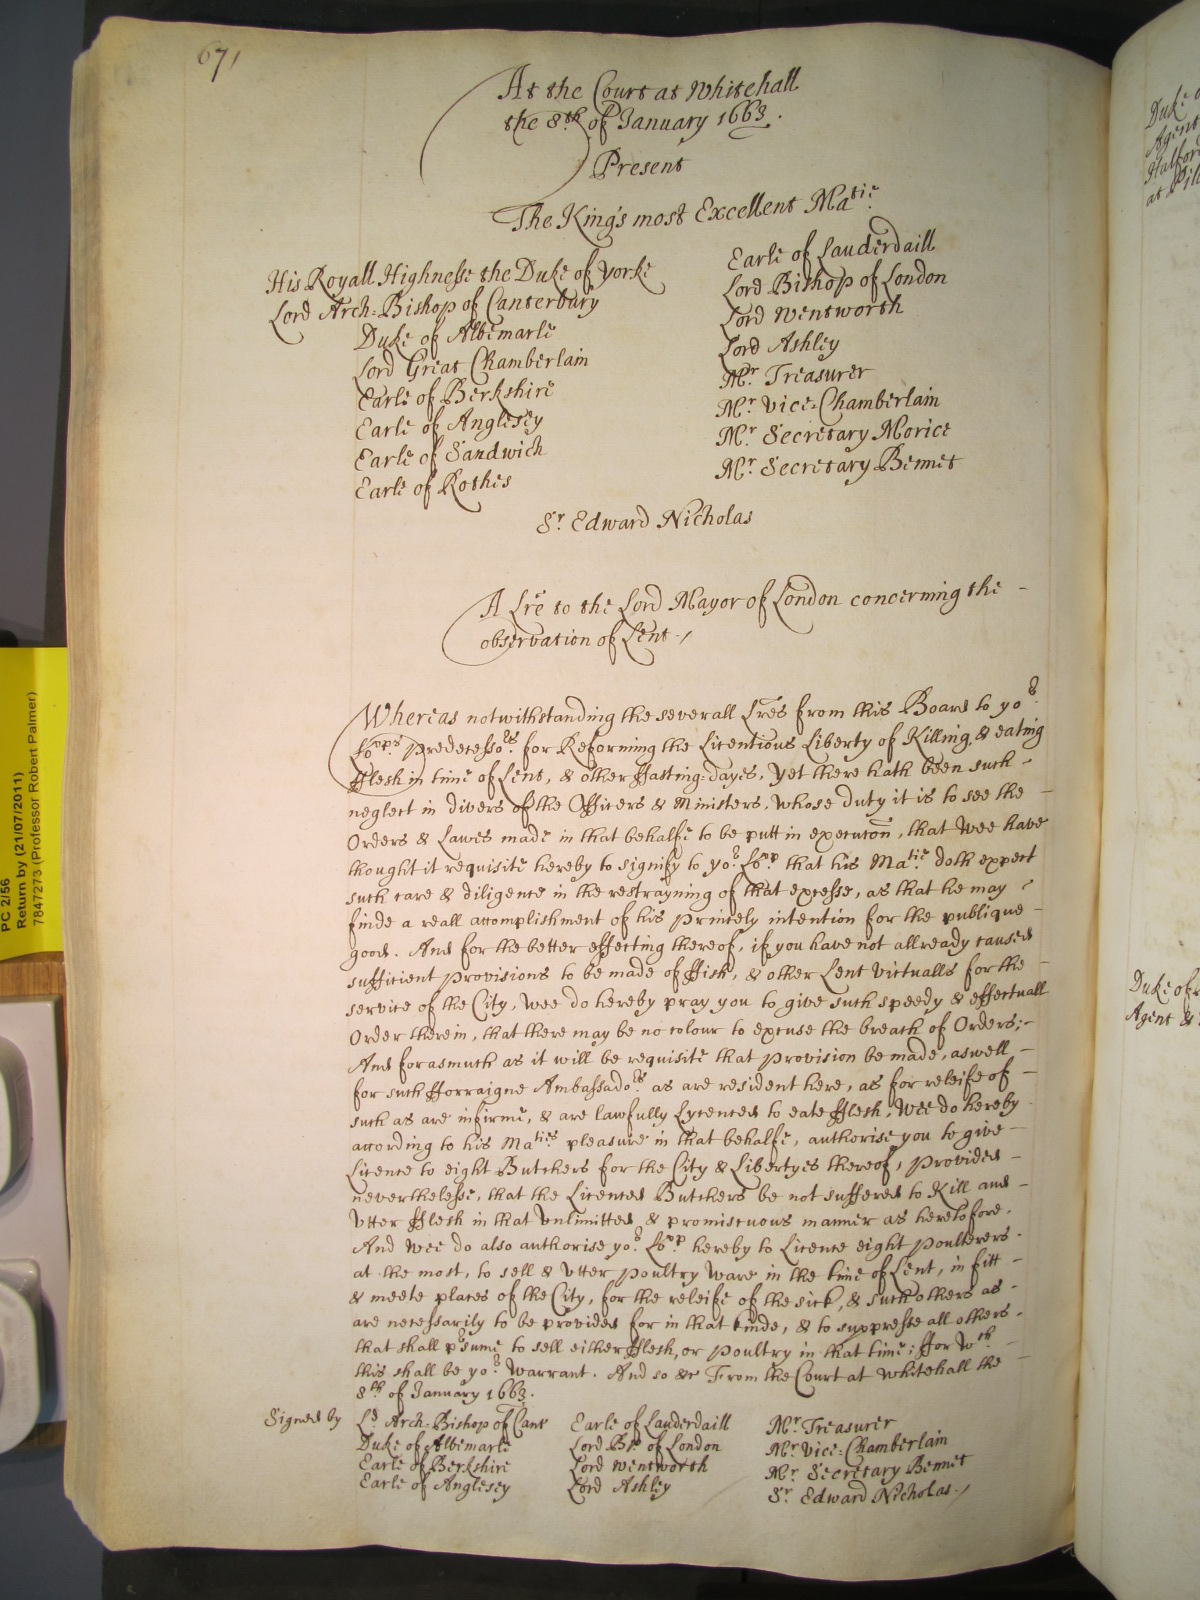 671
At the Court at Whitehall
the 8.th of January 1663.
Present
The King's most Excellent Ma.tie
His Royall Highnesse the Duke of Yorke
Lord Arch-Bishop of Canterbury
Duke of Albemarle
Lord Great Chamberlain
Earle of Berkshire
Earle of Anglesey
Earle of Sandwich
Earle of Rothes
Earle of Lauderdaill
Lord Bishop of London
Lord Wentworth
Lord Ashley
Mr. Treasurer
Mr. Vice-Chamberlain
Mr. Secretary Morice
Mr. Secretary Bennet
Sr. Edward Nicholas
A Lrē to the Lord Mayor of London concerning the -
observation of Lent./
Whereas notwithstanding the severall Lrēs from this Board to yor.
Lopps. Predecessors. for Reforming the Licentious Liberty of Killing, & eating
fflesh in time of Lent, & other ffasting-dayes, Yet there hath been such -
neglect in divers of the Officers & Ministers, whose duty it is to see the -
Orders & Lawes made in that behalfe to be putt in execucōn, that Wee have
thought it requisite hereby to signify to yor. Lopp. that his Matie. doth expect
such care & diligence in the restrayning of that excesse, as that he may -
finde a reall accomplishment of his Princely intention for the publique -
good. And for the better effecting thereof, if you have not allready caused
sufficient Provisions to be made of ffish, & other Lent victualls for the -
service of the City, Wee do hereby pray you to give such speedy & effectuall
Order therein, that there may be no colour to excuse the breach of Orders;-
And forasmuch as it will be requisite that Provision be made, aswell -
for such fforraigne Ambassadors. as are resident here, as for releife of -
such as are infirme, & are lawfully Lycenced to eate fflesh, Wee do hereby
according to his Maties. pleasure in that behalfe, authorise you to give -
Licence to eight Butchers for the City & Libertyes thereof, Provided -
neverthelesse, that the Licenced Butchers be not suffered to Kill and -
Utter fflesh in that unlimitted & promiscuous manner as heretofore.
And Wee do also authorise yor. Lopp. hereby to Licence eight Poulterers -
at the most, to sell & Utter Poultry Ware in the time of Lent, in fitt -
& meete places of the City, for the releife of the sick, & such others as -
are necessarily to be provided for in that kinde, & to suppresse all others -
that shall p'sume to sell either fflesh, or Poultry in that time; ffor Wch -
this shall be yor. Warrant. And so &c From the Court at Whitehall the -
8th of January 1663.
Signed by
Ld. Arch-Bishop of Cant
Duke of Albemarle
Earle of Berkshire
Earle of Anglesey
Earle of Lauderdaill
Lord Bp of London
Lord Wentworth
Lord Ashley
Mr. Treasurer
Mr. Vice-Chamberlain
Mr. Secretary Bennet
Sr. Edward Nicholas./
PC 2/56
Return by (21/07/2011)
7847273 (Professor Robert Palmer)
Duke of
Agent &